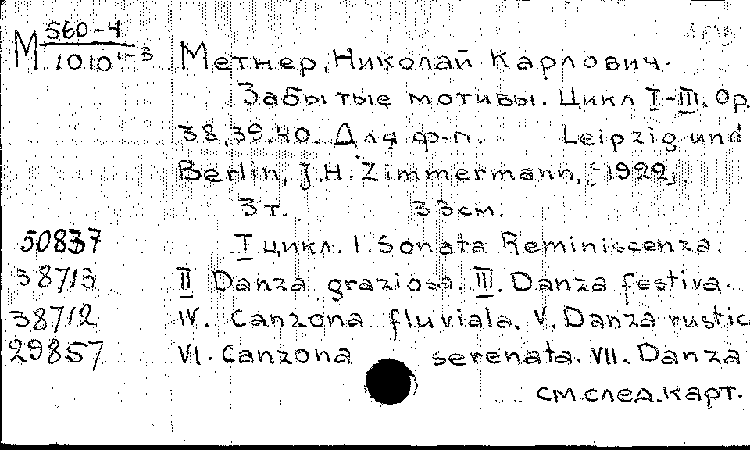 М 560-4
1010 1-3
Метнер, Николай Карлович.
Забытые мотивы. Цикл I-III. Op.
38, 39, 40. Для ф-п. Leipzig und
Berlin, J.H. Zimmermann, 1922,
3 т. 33см.
50837 I цикл. 1. Sonata Reminiscenza.
38713 II Danza graziosa. III. Danza festiva.
38712 IV. Canzona fluviala. V. Danza rustic
29857 VI. Canzona serenata. VII. Danza
см.след.карт.